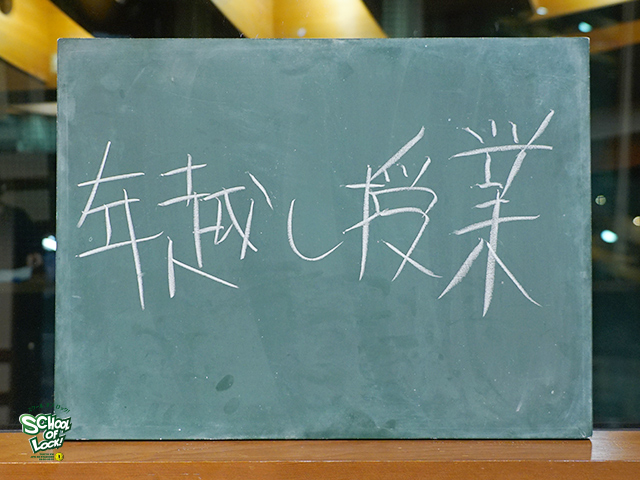 年越し授業
SCHOOL
OF
LOCK!